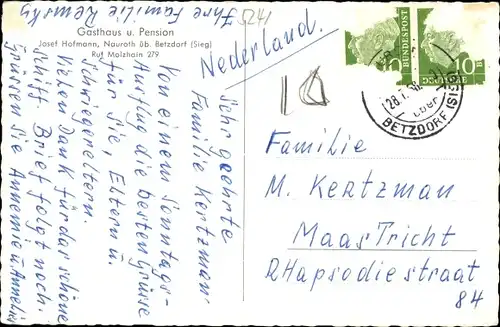 Gasthaus u. Pension
Josef Hofmann, Nauroth üb. Betzdorf (Sieg)
Ruf Molzhain 279
Sehr geehrte
Familie Kertzman
Von einem Sonntags-
Ausflug die besten Grüsse
für Sie, Eltern u.
Schwiegereltern.
Vielen Dank für das schöne
Schiff. Brief folgt noch.
Grüssen Sie Annemie u. Annelis
Ihre Familie
5241
Nederland.
10
DEUTSCHE
BUNDESPOST
10
über
BETZDORF (SIEG)
Familie
M. Kertzman
MaasTricht
RHapsodiestraat
84